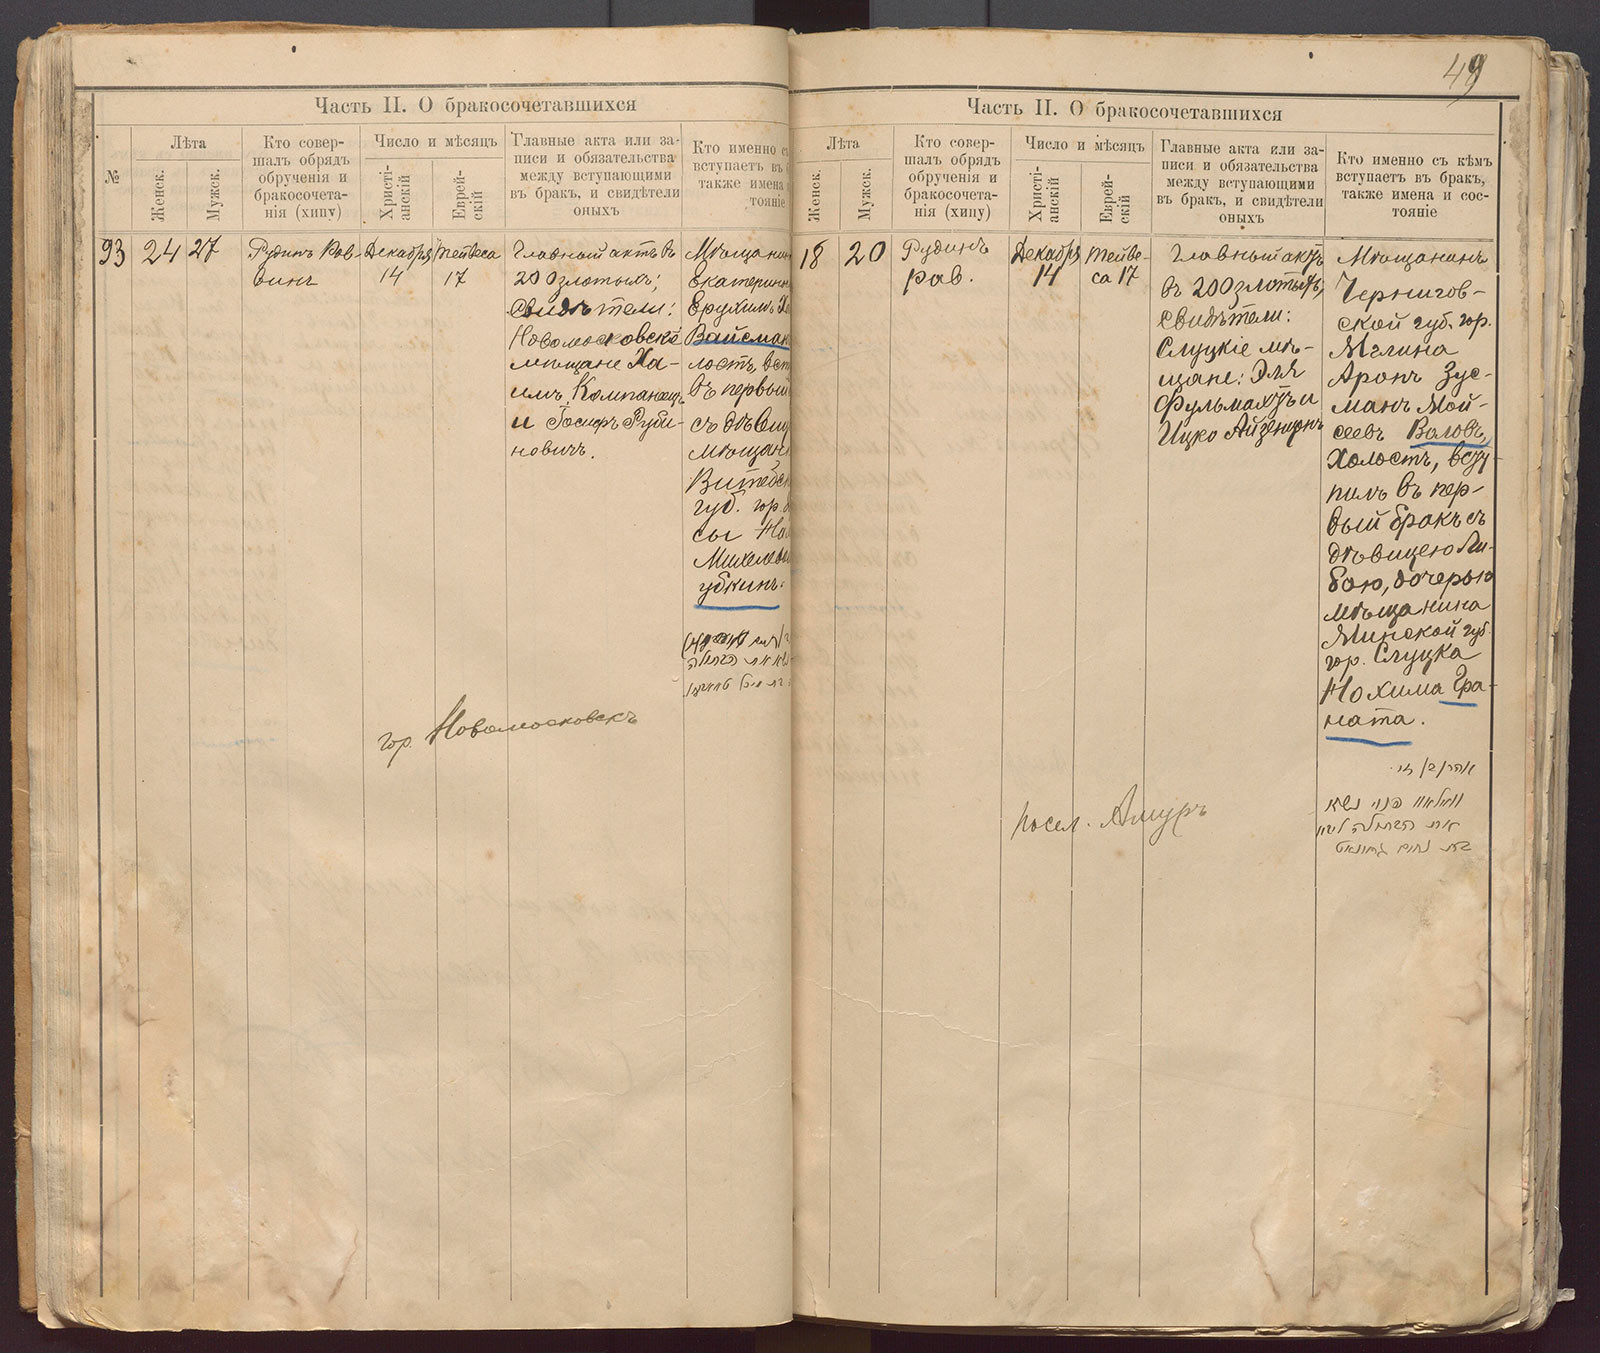 Часть II. О бракосочетавшихся
№
Лѣта
Женск.
Мужск.
Кто совер-
шалъ обрядъ
обрученія и
бракосочета-
нія (хипу)
Число и мѣсяцъ
Христі-
анскій
Еврей-
скій
Главные акта или за-
писи и обязательства
между вступающими
въ бракъ, и свидѣтели
оныхъ
Кто именно съ
вступаетъ въ
также имена
тояніе
93
24
27
Рудинъ Рав-
винъ
Декабря
14
Тейвеса
17
Главный актъ въ
200 злотыхъ;
свидѣтели:
Новомосковскіе
мѣщане Ха-
имъ Компанеецъ
и Іосифъ Руби-
новичъ.
Мѣщанин
Екатерин
Ерухимъ
Вайсман
лостъ, вст
въ первый
съ дѣвиц
мѣщан
Витебск
губ. гор.
сы
Михелев
убкинъ.
гор. Новомосковскъ
49
Часть II. О бракосочетавшихся
Лѣта
Женск.
Мужск.
Кто совер-
шалъ обрядъ
обрученія и
бракосочета-
нія (хипу)
Число и мѣсяцъ
Христі-
анскій
Еврей-
скій
Главные акта или за-
писи и обязательства
между вступающими
въ бракъ, и свидѣтели
оныхъ
Кто именно съ кѣмъ
вступаетъ въ бракъ,
также имена и сос-
тояніе
18
20
Рудинъ
рав.
Декабря
14
Тейве-
са 17
Главный актъ
въ 200 злотыхъ,
свидѣтели:
Слуцкіе мѣ-
щане: Эля
Фульмахтъ и
Ицко Айзенштокъ
Мѣщанинъ
Чернигов-
ской губ. гор.
Мглина
Аронъ Зус-
манъ Мой-
сеевъ Воловъ,
холостъ, всту-
пилъ въ пер-
вый бракъ съ
дѣвицею Ли-
бою, дочерью
мѣщанина
Минской губ.
гор. Слуцка
Нохима Гра-
ната.
פנוי נשא
את הבתולה
בת נחום גראנאט
посел. Амуръ